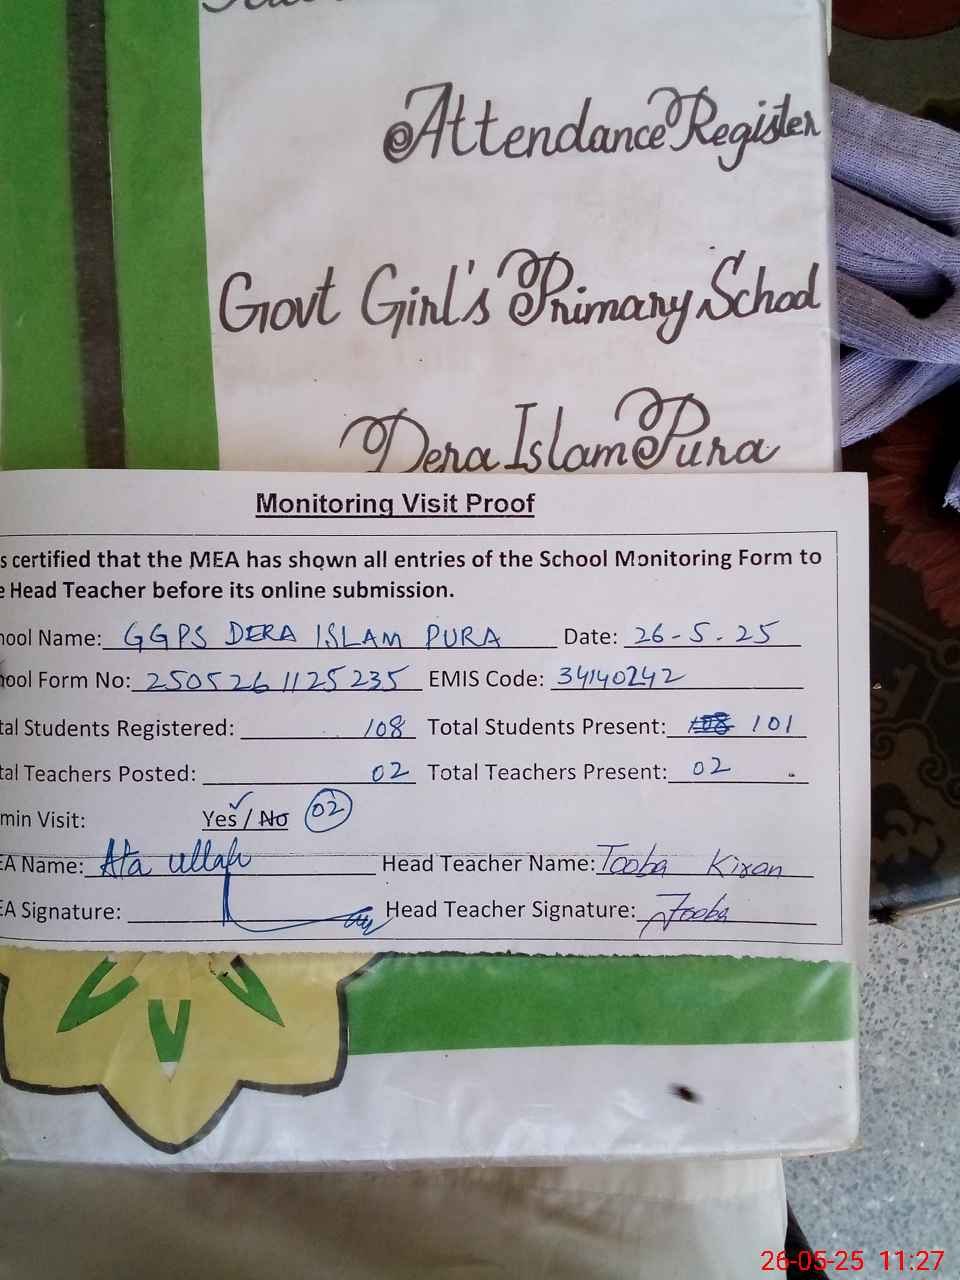 Attendance Register
Govt Girl's Primary School
Dera Islam Pura
Monitoring Visit Proof
s certified that the MEA has shown all entries of the School Monitoring Form to
e Head Teacher before its online submission.
hool Name: GGPS DERA ISLAM PURA Date: 26-5-25
ool Form No: 250526 1125235 EMIS Code: 34140242
tal Students Registered: 108 Total Students Present: 101
tal Teachers Posted: 02 Total Teachers Present: 02
min Visit: Yes / No 02
EA Name: Ata ullah Head Teacher Name: Tooba Kiran
EA Signature: Head Teacher Signature: Tooba
26-05-25 11:27